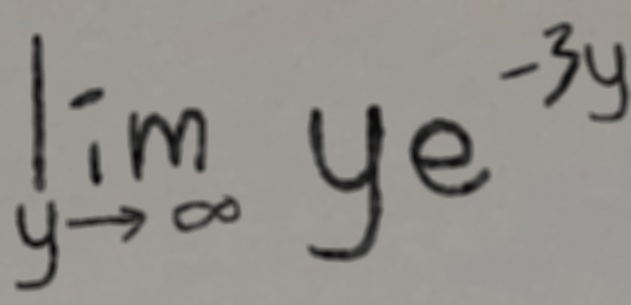 lim y→∞ ye^{-3y}